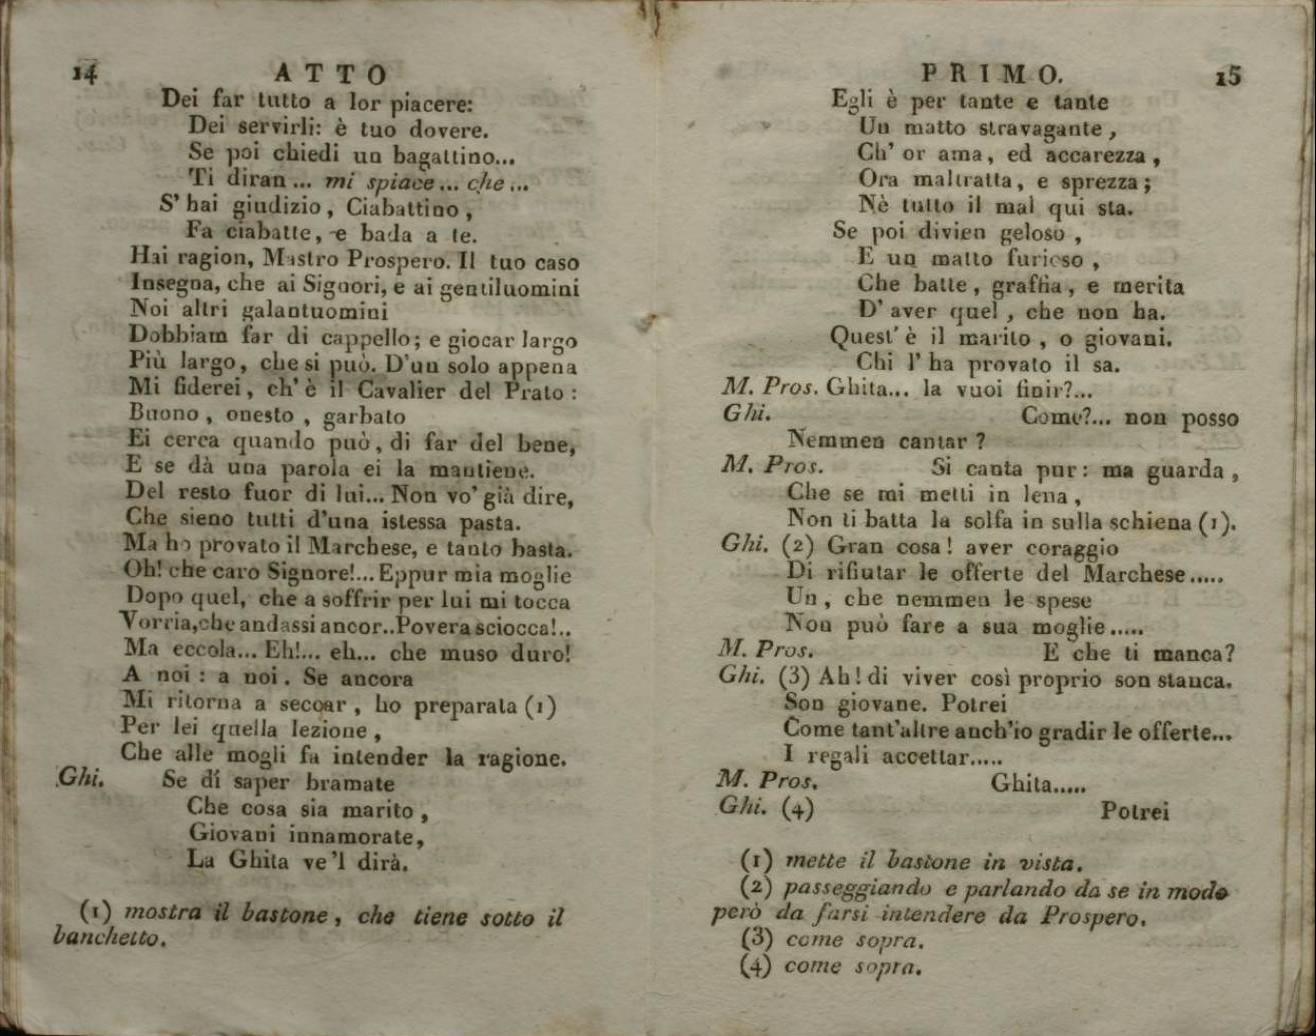 14
ATTO
Dei far tutto a lor piacere:
Dei servirli: è tuo dovere.
Se poi chiedi un bagattino...
Ti diran... mi spiace... che...
S' hai giudizio, Ciabattino,
Fa ciabatte, e bada a te.
Hai ragion, Mastro Prospero. Il tuo caso
Insegna, che ai Signori, e ai gentiluomini
Noi altri galantuomini
Dobbiam far di cappello; e giocar largo
Più largo, che si può. D'un solo appena
Mi fiderei, ch'è il Cavalier del Prato:
Buono, onesto, garbato
Ei cerca quando può, di far del bene,
E se dà una parola ei la mantiene.
Del resto fuor di lui... Non vo' già dire,
Che sieno tutti d'una istessa pasta.
Ma ho provato il Marchese, e tanto basta.
Oh! che caro Signore!... Eppur mia moglie
Dopo quel, che a soffrir per lui mi tocca
Vorria, che andassi ancor.. Povera sciocca!..
Ma eccola... Eh!... eh... che muso duro!
A noi: a noi. Se ancora
Mi ritorna a seccar, ho preparata (1)
Per lei quella lezione,
Che alle mogli fa intender la ragione.
Ghi. Se di saper bramate
Che cosa sia marito,
Giovani innamorate,
La Ghita ve 'l dirà.
(1) mostra il bastone, che tiene sotto il
banchetto.
PRIMO.
15
Egli è per tante e tante
Un matto stravagante,
Ch' or ama, ed accarezza,
Ora maltratta, e sprezza;
Nè tutto il mal qui sta.
Se poi divien geloso,
E un matto furioso,
Che batte, graffia, e merita
D' aver quel, che non ha.
Quest' è il marito, o giovani.
Chi l' ha provato il sa.
M. Pros. Ghita... la vuoi finir?...
Ghi. Come?... non posso
Nemmen cantar?
M. Pros. Si canta pur: ma guarda,
Che se mi metti in lena,
Non ti batta la solfa in sulla schiena (1).
Ghi. (2) Gran cosa! aver coraggio
Di rifiutar le offerte del Marchese.....
Un, che nemmen le spese
Non può fare a sua moglie.....
M. Pros. E che ti manca?
Ghi. (3) Ah! di viver così proprio son stanca.
Son giovane. Potrei
Come tant'altre anch'io gradir le offerte...
I regali accettar.....
M. Pros. Ghita.....
Ghi. (4) Potrei
(1) mette il bastone in vista.
(2) passeggiando e parlando da se in modo
però da farsi intendere da Prospero.
(3) come sopra.
(4) come sopra.